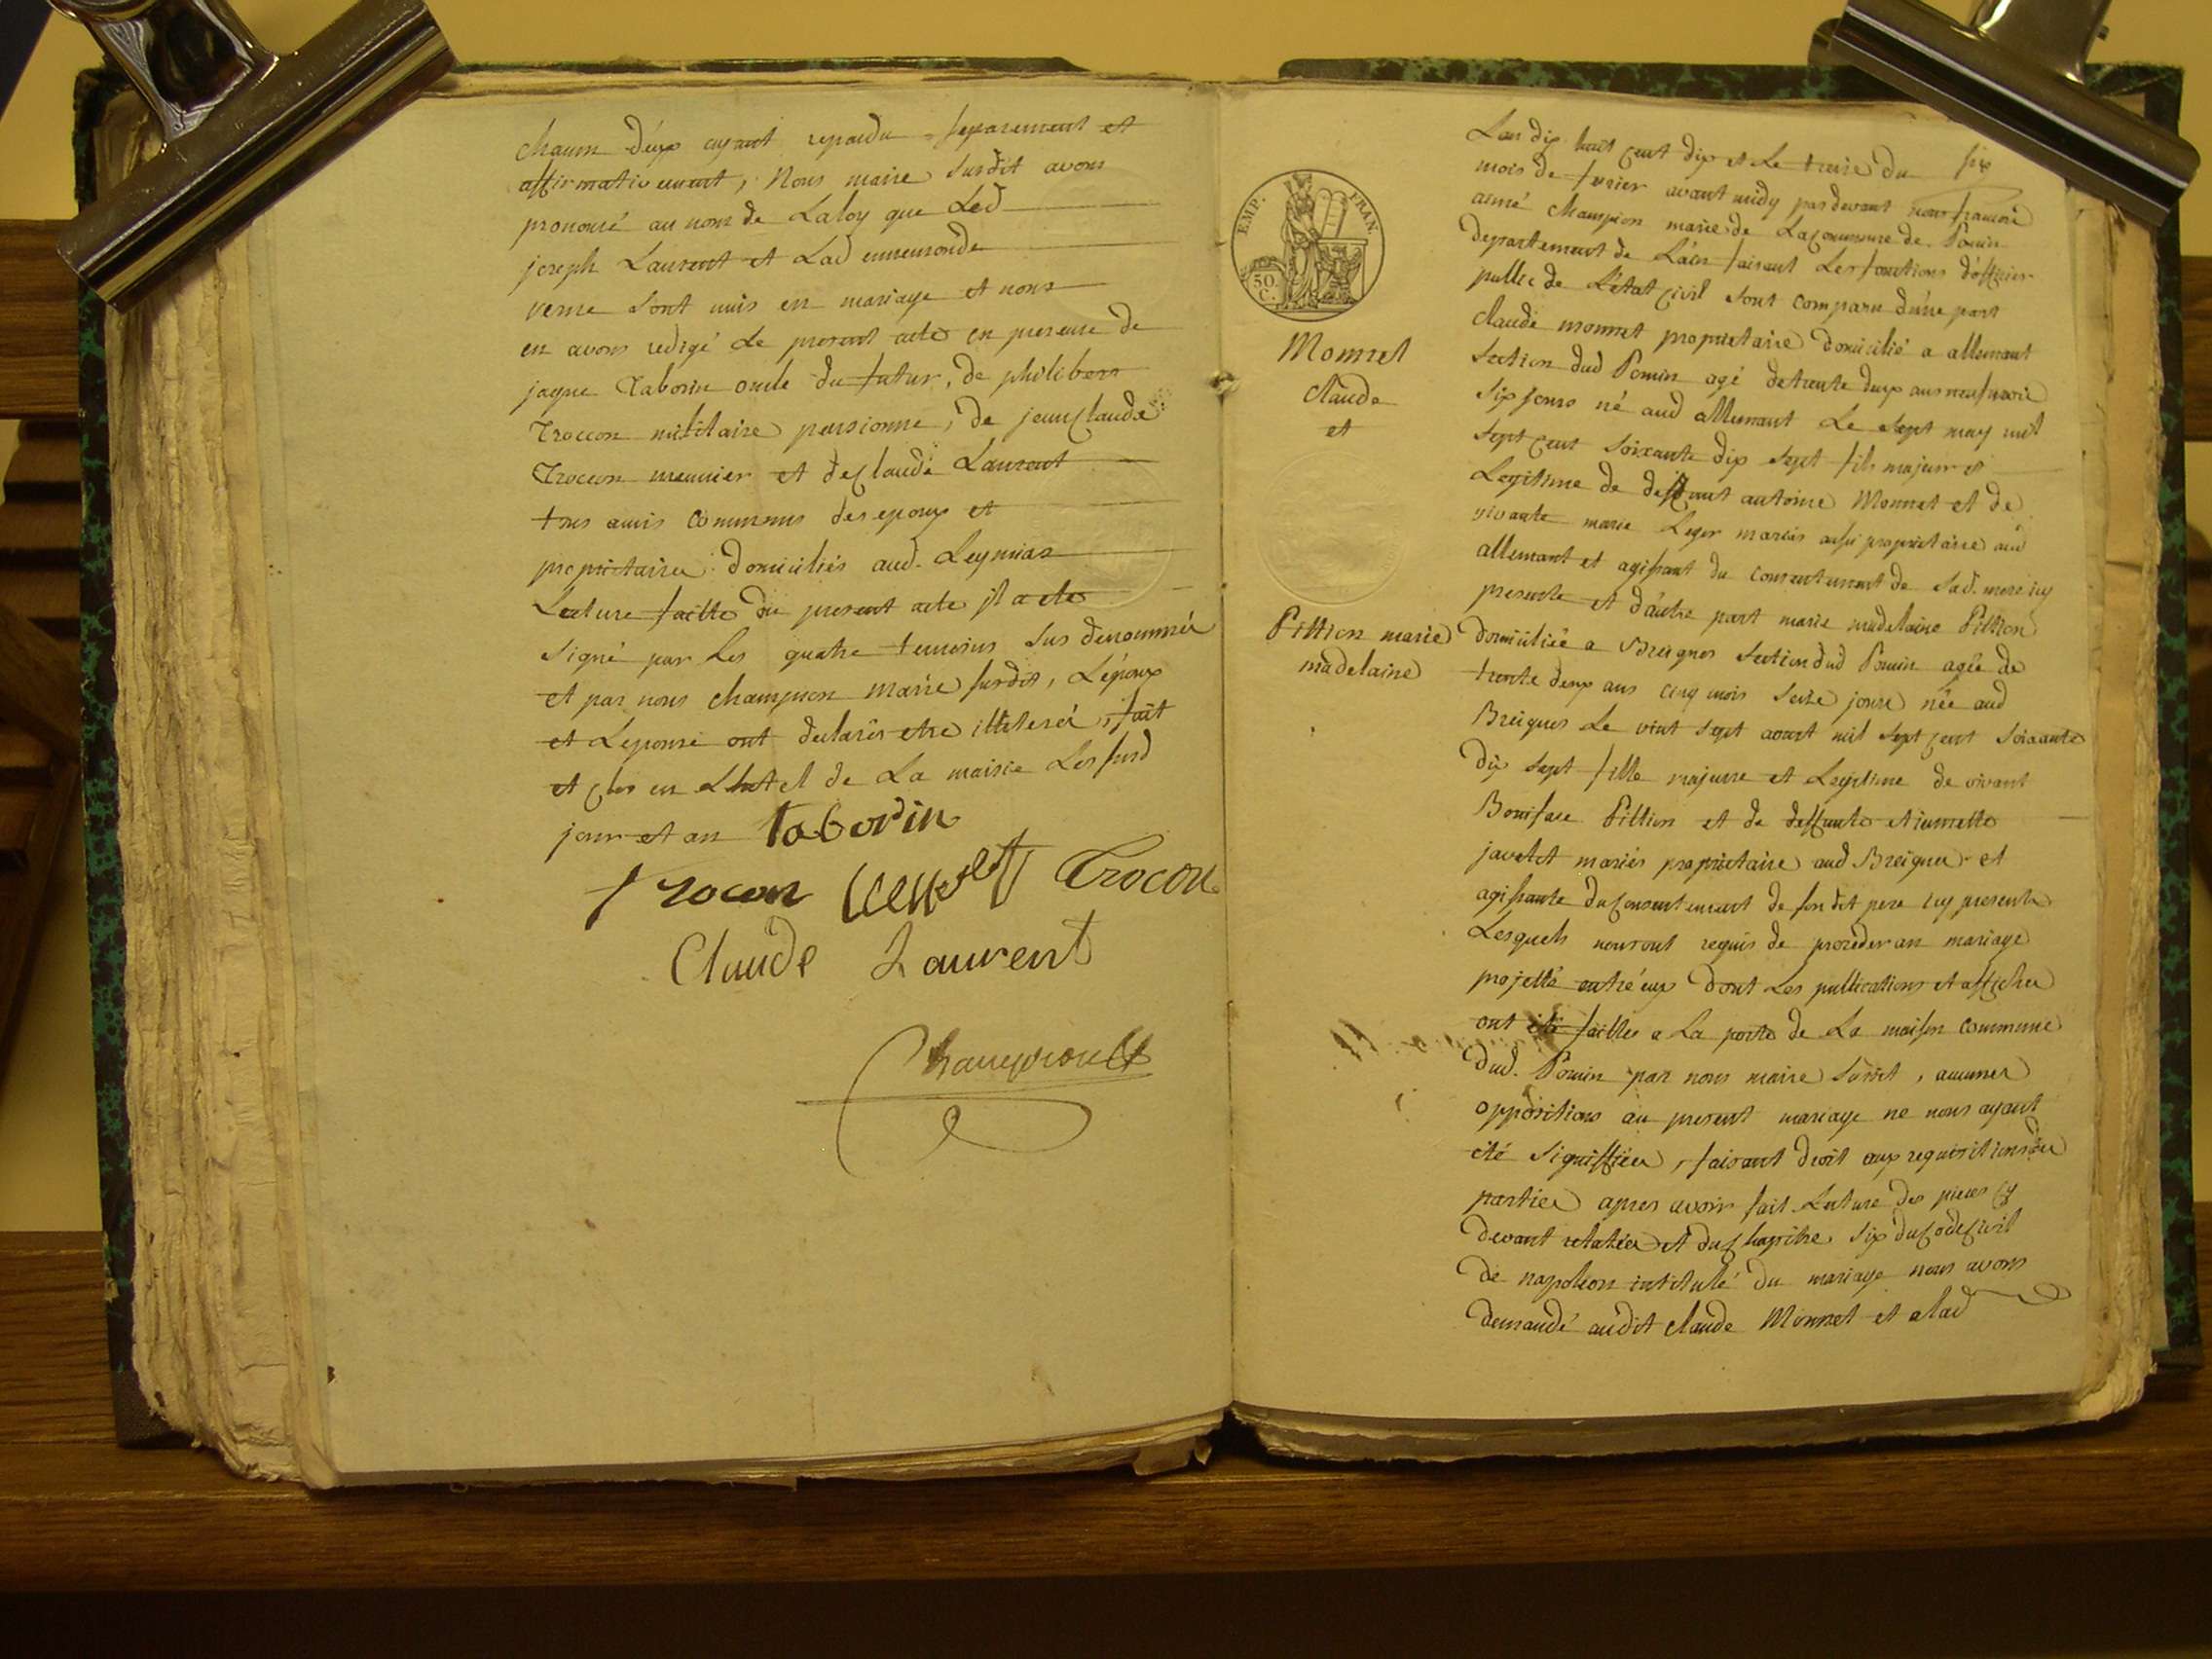 chacun d'eux ayant repondu separement et
affirmativement, Nous maire susdit avons
prononcé au nom de La loy que Led
joseph Laurent et Lad ennemonde
verne sont unis en mariage et nous
en avons redigé Le present acte en presence de
jaque Taborin oncle du futur, de philibert
Troccon militaire pensionne, de jean claude
Troccon meunier et de claude Laurent
tous amis communs des epoux et
propriétaires domiciliés aud. Leymiat
Lecture faitte du present acte il a ete
signé par Les quatre temoins sus denommés
et par nous champion maire susdit, L'époux
et L'epouse ont declarés etre illiterés, fait
et clos en L'hotel de La mairie Les susd
jour et an taborin
trocon Trocon
Claude Laurent
Champion
EMP. FRAN.
50. C.
Monnet
claude
et
Pittion marie
madelaine
L'an dix huit cent dix et Le treize du six
mois de fevrier avant midy pardevant nous francois
aimé champion maire de La commune de Poncin
departement de L'ain faisant Les fonctions d'officier
public de L'état civil sont comparu d'une part
claude monnet proprietaire domicilié a allemant
section dud Poncin agé de trente deux ans neuf mois
six jours né aud allemant Le sept may mil
sept cent soixante dix sept fils majeur et
Legitime de deffunt antoine Monnet et de
vivante marie Leger mariés aussi propriétaire aud
allemant et agissant du consentement de sad. mere icy
presente et d'autre part marie madelaine Pittion
domiciliée a Breignes section dud Poncin agée de
trente deux ans cinq mois seize jours née aud
Breignes Le vint sept aoust mil sept cent soixante
dix sept fille majeure et Legitime de vivant
Boniface Pittion et de deffunte etiennette
javelet mariés propriétaire aud Breignes et
agissante du consentement de son dit pere icy present
Lesquels nous ont requis de proceder au mariage
projetté entre eux dont Les publications et affiches
ont été faittes a La porte de La maison commune
dud. Poncin par nous maire susdit, aucunes
oppositions au present mariage ne nous ayant
été signiffiées, faisant droit aux requisitions des
parties apres avoir fait Lecture des pieces cy
devant relatées et du chapitre six du code civil
de napoléon intitulé du mariage nous avons
demandé audit claude Monnet et a lad